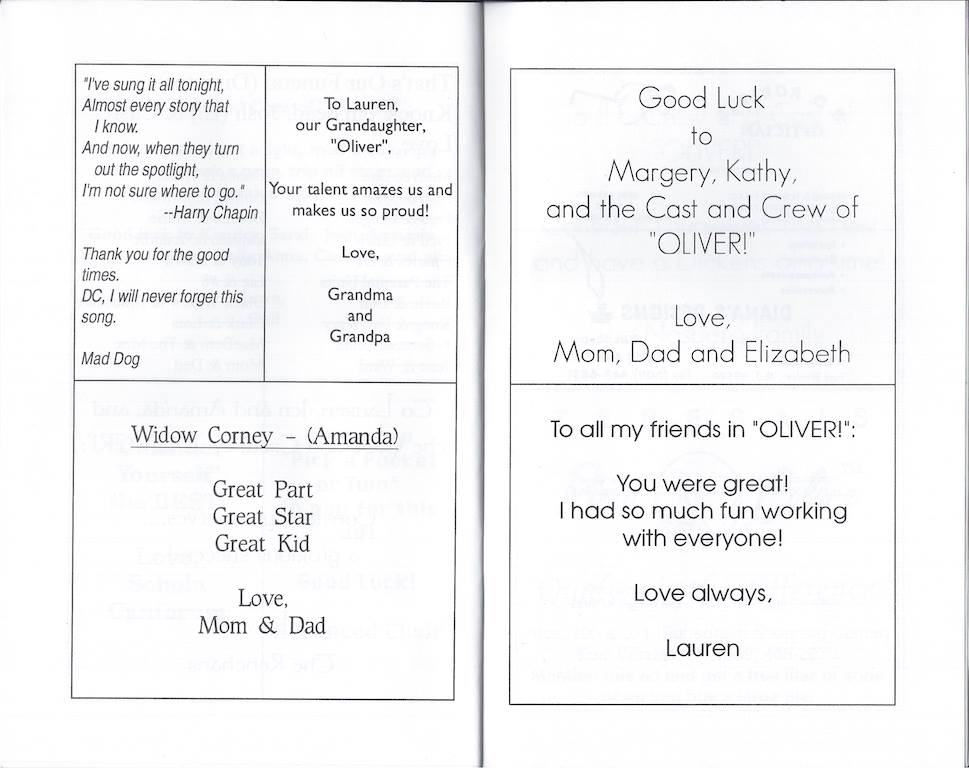 "I've sung it all tonight,
Almost every story that
I know.
And now, when they turn
out the spotlight,
I'm not sure where to go."
--Harry Chapin
Thank you for the good
times.
DC, I will never forget this
song.
Mad Dog
To Lauren,
our Grandaughter,
"Oliver",
Your talent amazes us and
makes us so proud!
Love,
Grandma
and
Grandpa
Widow Corney – (Amanda)
Great Part
Great Star
Great Kid
Love,
Mom & Dad
Good Luck
to
Margery, Kathy,
and the Cast and Crew of
"OLIVER!"
Love,
Mom, Dad and Elizabeth
To all my friends in "OLIVER!":
You were great!
I had so much fun working
with everyone!
Love always,
Lauren